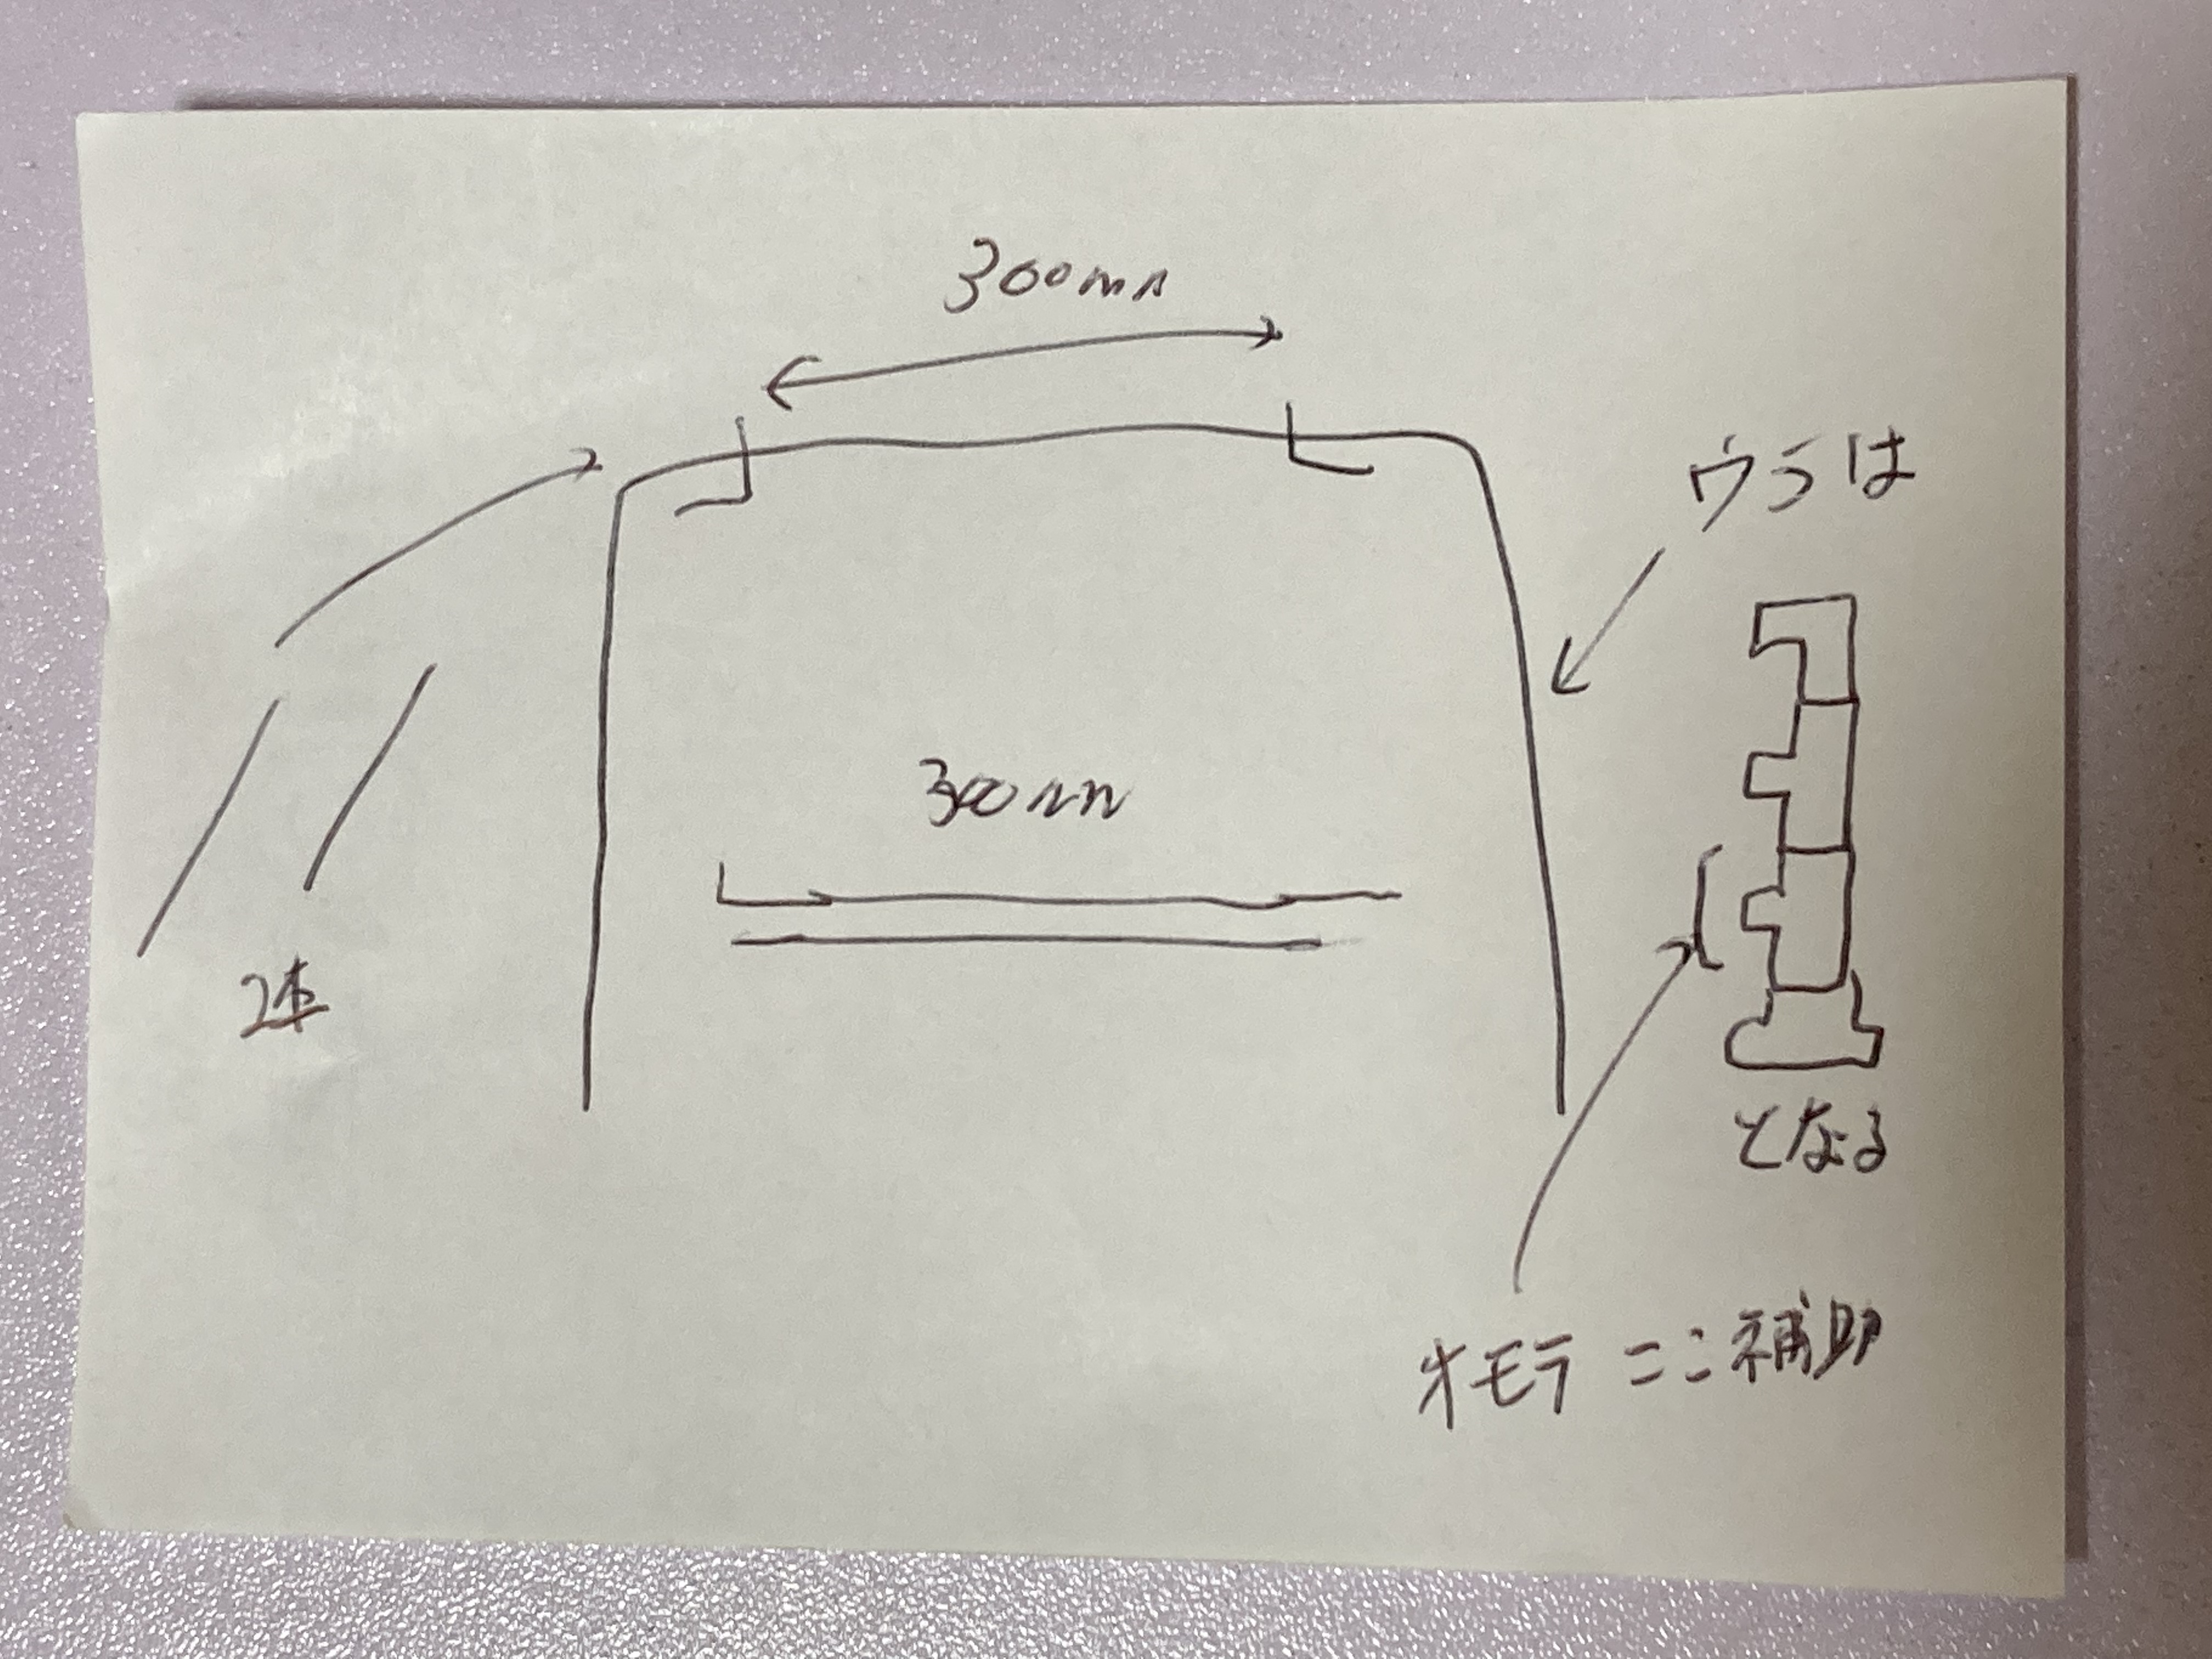 300mm
ウラは
300mm
2本
となる
オモテ ここ補助